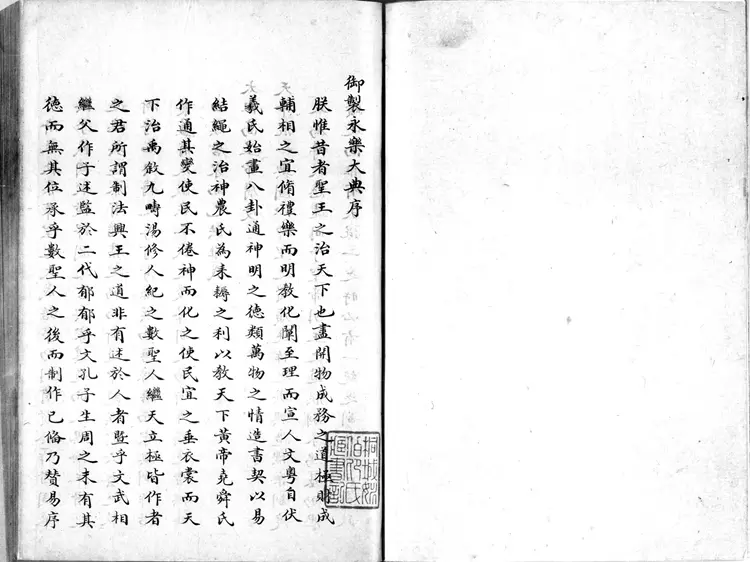 御製永樂大典序
朕惟昔者聖王之治天下也盡開物成務之道極財成
輔相之宜脩禮樂而明教化闡至理而宣人文粵自伏
羲氏始畫八卦通神明之德類萬物之情造書契以易
結繩之治神農氏為耒耨之利以教天下黃帝堯舜氏
作通其變使民不倦神而化之使民宜之垂衣裳而天
下治禹敘九疇湯修人紀之數聖人繼天立極皆作者
之君所謂制法興王之道非有述於人者暨乎文武相
繼父作子述監於二代郁郁乎文孔子生周之末有其
德而無其位承乎數聖人之後而制作已俻乃贊易序
桐城姚
伯卬氏
藏書記